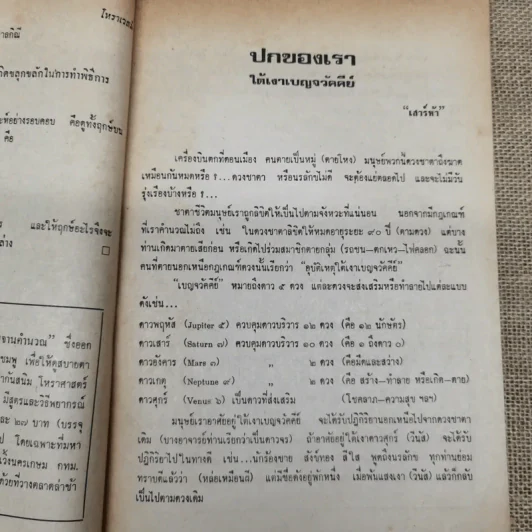 โหราเวสม์
าธกิณี
กิดขลุกขลักในการทำพิธีการ
ะห์อย่างรอบคอบ คือดูทั้งฤกษ์บน
คือ
และให้ฤกษ์อะไรจึงจะ
ล่าง
จานคำนวณ" ซึ่งออก
ชมพู เพื่อให้ดูสบายตา
ากันสนิม โหราศาสตร์
มีสูตรและวิธีพยากรณ์
และ ๒๗ บาท (บรรจุ
ป โดยเฉพาะที่มหา
เว้งนครเกษม กทม.
ด้วยที่วางตลาดล่าช้า
ปกของเรา
ใต้เงาเบญจวัคคีย์
"เสาร์ห้า"
เครื่องบินตกที่ดอนเมือง คนตายเป็นหมู่ (ตายโหง) มนุษย์พวกนี้ดวงชาตาถึงฆาต
เหมือนกันหมดหรือ ?...ดวงชาตา หรือนรลักข์ไม่ดี จะต้องแย่ตลอดไป และจะไม่มีวัน
รุ่งเรืองบ้างหรือ ?...
ชาตาชีวิตมนุษย์เราถูกลิขิตให้เป็นไปตามจังหวะที่แน่นอน นอกจากมีกฎเกณฑ์
ที่เราคำนวณไม่ถึง เช่น ในดวงชาตาลิขิตให้หมดอายุระยะ ๙๐ ปี (ตามดวง) แต่บาง
ท่านเกิดมาตายเสียก่อน หรือเกิดไปร่วมสมาชิกตายกลุ่ม (รถชน–ตกเหว–ไฟคลอก) ฉะนั้น
คนที่ตายนอกเหนือกฎเกณฑ์ดวงนั้นเรียกว่า "อุบัติเหตุใต้เงาเบญจวัคคีย์"
"เบญจวัคคีย์" หมายถึงดาว ๕ ดวง แต่ละดวงจะส่งเสริมหรือทำลายไปแต่ละแบบ
ดังเช่น...
ดาวพฤหัส (Jupiter ๕) ควบคุมดาวบริวาร ๑๒ ดวง (คือ ๑๒ นักษัตร)
ดาวเสาร์ (Saturn ๗) ควบคุมดาวบริวาร ๑๐ ดวง (คือ ๑ ถึงดาว ๐)
ดาวอังคาร (Mars ๓) " ๒ ดวง (คือมืดและสว่าง)
ดาวเกตุ (Neptune ๙) " ๒ ดวง (คือ สร้าง–ทำลาย หรือเกิด–ตาย)
ดาวศุกร์ (Venus ๖) เป็นดาวที่ส่งเสริม (โชคลาภ–ความสุข ฯลฯ)
มนุษย์เราอาศัยอยู่ใต้เงาเบญจวัคคีย์ จะได้รับปฏิกิริยานอกเหนือไปจากดวงชาตา
เดิม (บางอาจารย์ท่านเรียกว่าเป็นดาวจร) ถ้าอาศัยอยู่ใต้เงาดาวศุกร์ (วีนัส) จะได้รับ
ปฏิกิริยาไปในทางดี เช่น...นักร้องชาย สังข์ทอง สีใส พูดถึงนรลักข ทุกท่านย่อม
ทราบดีแล้วว่า (หล่อเหมือนผี) แต่มีชื่อดังอยู่พักหนึ่ง เมื่อพ้นแสงเงา (วีนัส) แล้วก็กลับ
เป็นไปตามดวงเดิม